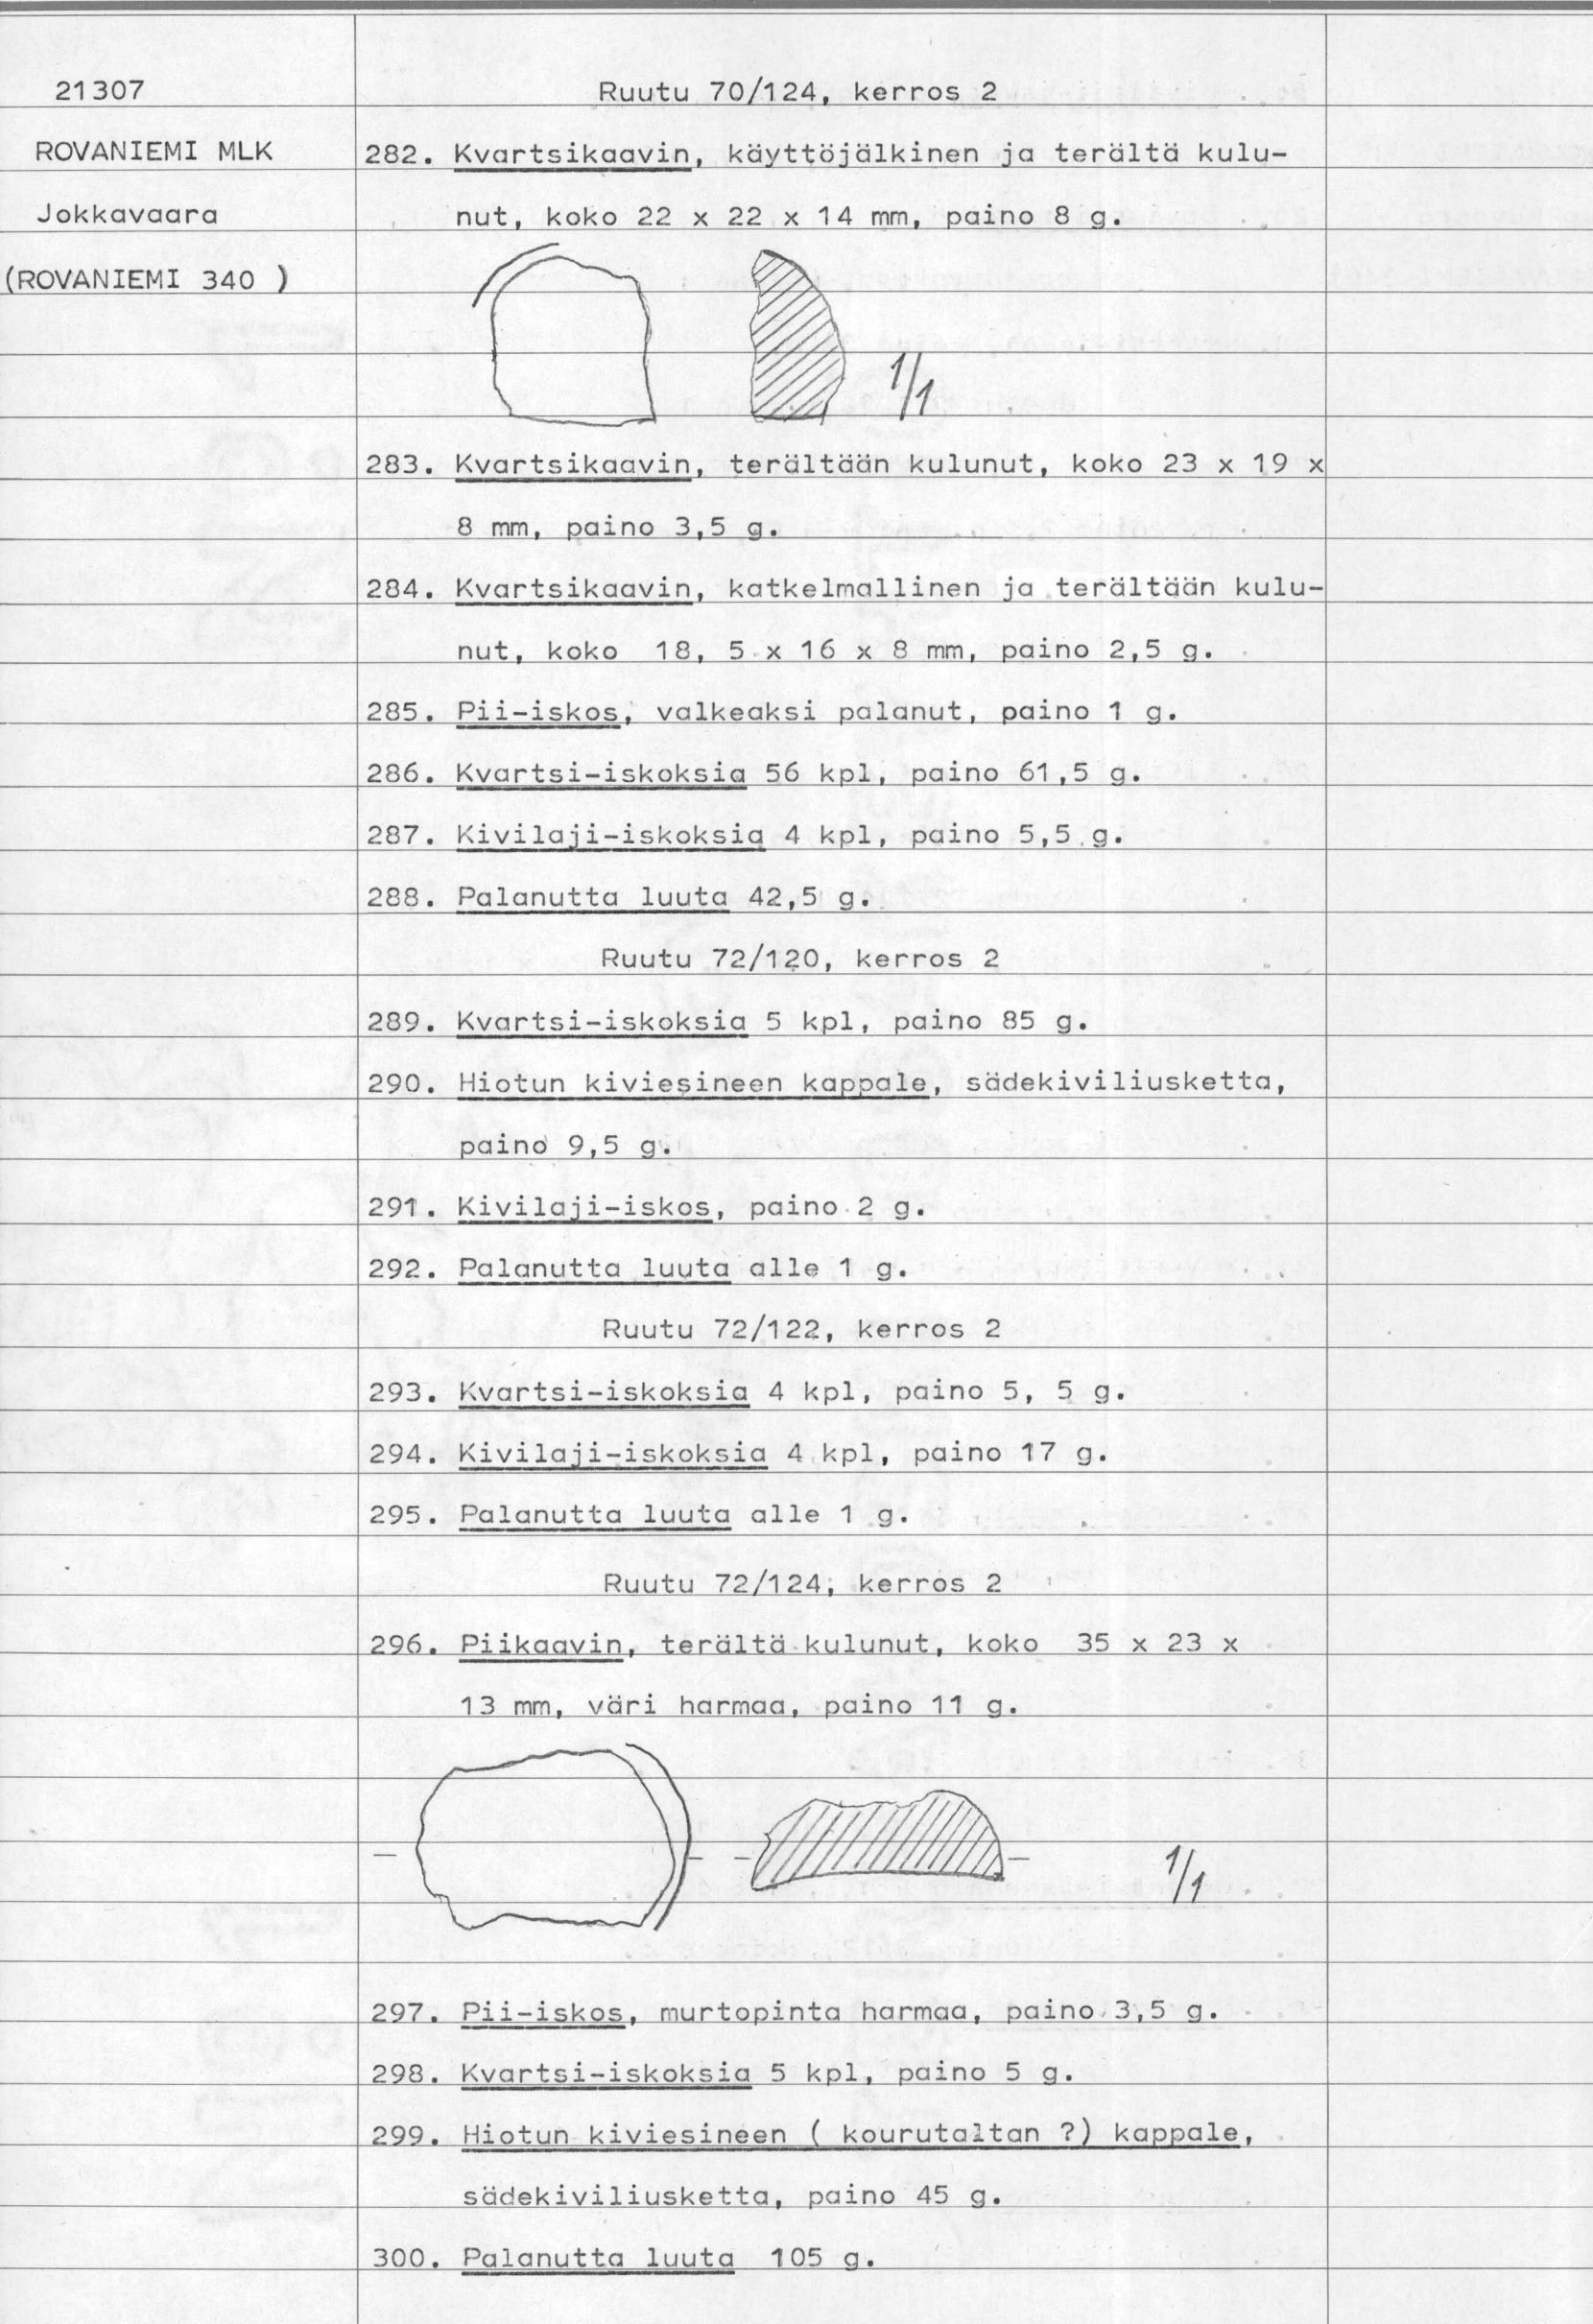 21307
ROVANIEMI MLK
Jokkavaara
(ROVANIEMI 340 )
Ruutu 70/124, kerros 2
282. Kvartsikaavin, käyttöjälkinen ja terältä kulu-
nut, koko 22 x 22 x 14 mm, paino 8 g.
1/1
283. Kvartsikaavin, terältään kulunut, koko 23 x 19 x
8 mm, paino 3,5 g.
284. Kvartsikaavin, katkelmallinen ja terältään kulu-
nut, koko 18, 5 x 16 x 8 mm, paino 2,5 g.
285. Pii-iskos, valkeaksi palanut, paino 1 g.
286. Kvartsi-iskoksia 56 kpl, paino 61,5 g.
287. Kivilaji-iskoksia 4 kpl, paino 5,5 g.
288. Palanutta luuta 42,5 g.
Ruutu 72/120, kerros 2
289. Kvartsi-iskoksia 5 kpl, paino 85 g.
290. Hiotun kiviesineen kappale, sädekiviliusketta,
paino 9,5 g.
291. Kivilaji-iskos, paino 2 g.
292. Palanutta luuta alle 1 g.
Ruutu 72/122, kerros 2
293. Kvartsi-iskoksia 4 kpl, paino 5, 5 g.
294. Kivilaji-iskoksia 4 kpl, paino 17 g.
295. Palanutta luuta alle 1 g.
Ruutu 72/124, kerros 2
296. Piikaavin, terältä kulunut, koko 35 x 23 x
13 mm, väri harmaa, paino 11 g.
1/1
297. Pii-iskos, murtopinta harmaa, paino 3,5 g.
298. Kvartsi-iskoksia 5 kpl, paino 5 g.
299. Hiotun kiviesineen ( kourutaltan ?) kappale,
sädekiviliusketta, paino 45 g.
300. Palanutta luuta 105 g.